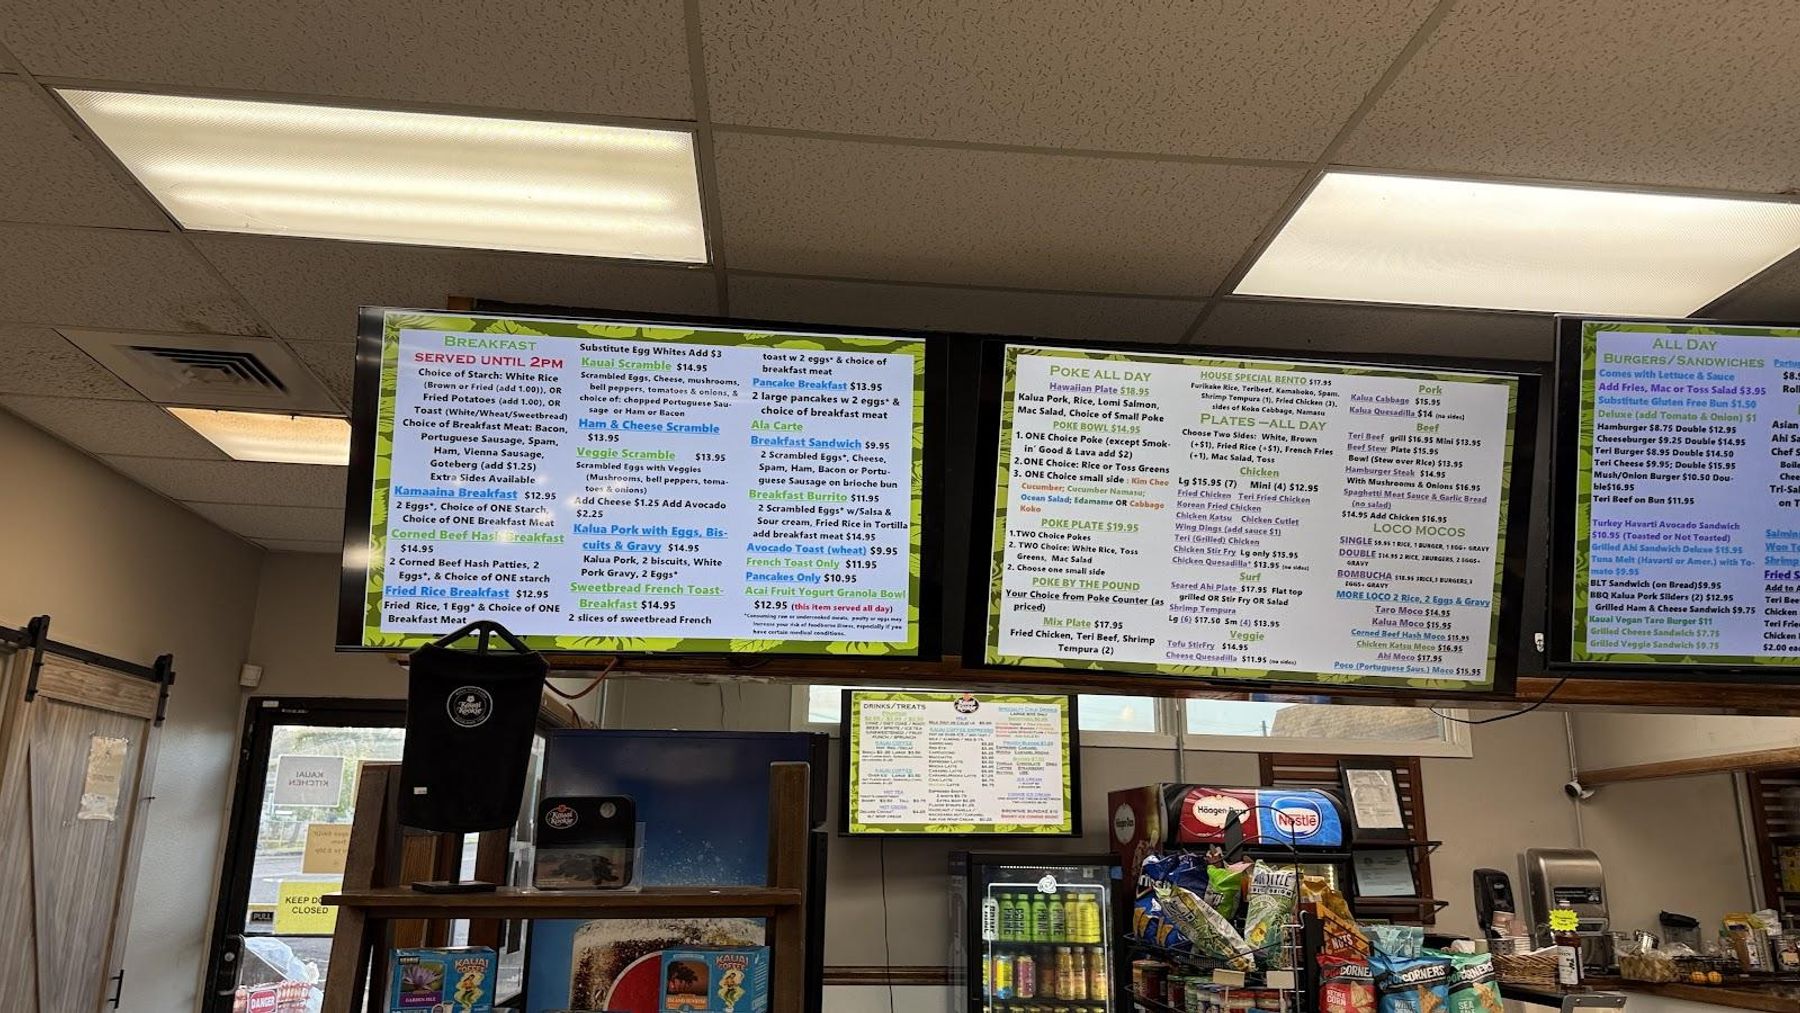 BREAKFAST
SERVED UNTIL 2PM
Choice of Starch: White Rice
(Brown or Fried (add 1.00)), OR
Fried Potatoes (add 1.00), OR
Toast (White/Wheat/Sweetbread)
Choice of Breakfast Meat: Bacon,
Portuguese Sausage, Spam,
Ham, Vienna Sausage,
Goteberg (add $1.25)
Extra Sides Available
Kamaaina Breakfast $12.95
2 Eggs*, Choice of ONE Starch,
Choice of ONE Breakfast Meat
Corned Beef Hash Breakfast
$14.95
2 Corned Beef Hash Patties, 2
Eggs*, & Choice of ONE starch
Fried Rice Breakfast $12.95
Fried Rice, 1 Egg* & Choice of ONE
Breakfast Meat
Substitute Egg Whites Add $3
Kauai Scramble $14.95
Scrambled Eggs, Cheese, mushrooms,
bell peppers, tomatoes & onions, &
choice of: chopped Portuguese Sau-
sage or Ham or Bacon
Ham & Cheese Scramble
$13.95
Veggie Scramble $13.95
Scrambled Eggs with Veggies
(Mushrooms, bell peppers, toma-
toes & onions)
Add Cheese $1.25 Add Avocado
$2.25
Kalua Pork with Eggs, Bis-
cuits & Gravy $14.95
Kalua Pork, 2 biscuits, White
Pork Gravy, 2 Eggs*
Sweetbread French Toast-
Breakfast $14.95
2 slices of sweetbread French
toast w 2 eggs* & choice of
breakfast meat
Pancake Breakfast $13.95
2 large pancakes w 2 eggs* &
choice of breakfast meat
Ala Carte
Breakfast Sandwich $9.95
2 Scrambled Eggs*, Cheese,
Spam, Ham, Bacon or Portu-
guese Sausage on brioche bun
Breakfast Burrito $11.95
2 Scrambled Eggs* w/Salsa &
Sour cream, Fried Rice in Tortilla
add breakfast meat $14.95
Avocado Toast (wheat) $9.95
French Toast Only $11.95
Pancakes Only $10.95
Acai Fruit Yogurt Granola Bowl
$12.95 (this item served all day)
*Consuming raw or undercooked meats, poultry or eggs may
increase your risk of foodborne illness, especially if you
have certain medical conditions.
POKE ALL DAY
Hawaiian Plate $18.95
Kalua Pork, Rice, Lomi Salmon,
Mac Salad, Choice of Small Poke
POKE BOWL $14.95
1. ONE Choice Poke (except Smok-
in' Good & Lava add $2)
2. ONE Choice: Rice or Toss Greens
3. ONE Choice small side : Kim Chee
Cucumber; Cucumber Namasu;
Ocean Salad; Edamame OR Cabbage
Koko
POKE PLATE $19.95
1.TWO Choice Pokes
2. TWO Choice: White Rice, Toss
Greens, Mac Salad
2. Choose one small side
POKE BY THE POUND
Your Choice from Poke Counter (as
priced)
Mix Plate $17.95
Fried Chicken, Teri Beef, Shrimp
Tempura (2)
HOUSE SPECIAL BENTO $17.95
Furikake Rice, Teribeef, Kamaboko, Spam,
Shrimp Tempura (1), Fried Chicken (3),
sides of Koko Cabbage, Namasu
PLATES—ALL DAY
Choose Two Sides: White, Brown
(+$1), Fried Rice (+$1), French Fries
(+1), Mac Salad, Toss
Chicken
Lg $15.95 (7) Mini (4) $12.95
Fried Chicken Teri Fried Chicken
Korean Fried Chicken
Chicken Katsu Chicken Cutlet
Wing Dings (add sauce $1)
Teri (Grilled) Chicken
Chicken Stir Fry Lg only $15.95
Chicken Quesadilla* $13.95 (no sides)
Surf
Seared Ahi Plate $17.95 Flat top
grilled OR Stir Fry OR Salad
Shrimp Tempura
Lg (6) $17.50 Sm (4) $13.95
Veggie
Tofu StirFry $14.95
Cheese Quesadilla $11.95 (no sides)
Pork
Kalua Cabbage $15.95
Kalua Quesadilla $14 (no sides)
Beef
Teri Beef grill $16.95 Mini $13.95
Beef Stew Plate $15.95
Bowl (Stew over Rice) $13.95
Hamburger Steak $14.95
With Mushrooms & Onions $16.95
Spaghetti Meat Sauce & Garlic Bread
(no salad)
$14.95 Add Chicken $16.95
LOCO MOCOS
SINGLE $9.95 1 RICE, 1 BURGER, 1 EGG+ GRAVY
DOUBLE $14.95 2 RICE, 2BURGERS, 2 EGGS+
GRAVY
BOMBUCHA $18.95 3RICE,3 BURGERS,3
EGGS+ GRAVY
MORE LOCO 2 Rice, 2 Eggs & Gravy
Taro Moco $14.95
Kalua Moco $15.95
Corned Beef Hash Moco $15.95
Chicken Katsu Moco $16.95
Ahi Moco $17.95
Poco (Portuguese Saus.) Moco $15.95
ALL DAY
BURGERS/SANDWICHES
Comes with Lettuce & Sauce
Add Fries, Mac or Toss Salad $3.95
Substitute Gluten Free Bun $1.50
Deluxe (add Tomato & Onion) $1
Hamburger $8.75 Double $12.95
Cheeseburger $9.25 Double $14.95
Teri Burger $8.95 Double $14.50
Teri Cheese $9.95; Double $15.95
Mush/Onion Burger $10.50 Dou-
ble$16.95
Teri Beef on Bun $11.95
Turkey Havarti Avocado Sandwich
$10.95 (Toasted or Not Toasted)
Grilled Ahi Sandwich Deluxe $15.95
Tuna Melt (Havarti or Amer.) with To-
mato $9.95
BLT Sandwich (on Bread)$9.95
BBQ Kalua Pork Sliders (2) $12.95
Grilled Ham & Cheese Sandwich $9.75
Kauai Vegan Taro Burger $11
Grilled Cheese Sandwich $7.75
Grilled Veggie Sandwich $9.75
Asian
Chef S
on T
Fried S
Add to A
Teri Bee
Chicken
Teri Frie
Chicken
$2.00 ea
DRINKS/TREATS
KAUAI COFFEE
HOT TEA
ICE CREAM
Kauai
Kookie
Kauai
Kookie
KAUAI
KITCHEN
KEEP DO
CLOSED
PULL
DANGER
GARDEN ISLE
KAUAI
COFFEE
ISLAND SUNRISE
KAUAI
COFFEE
Häagen-Dazs
Nestlé
NUTS
CORNE
POPCORNERS
WHITE
POPCORNERS
SEA
SALT